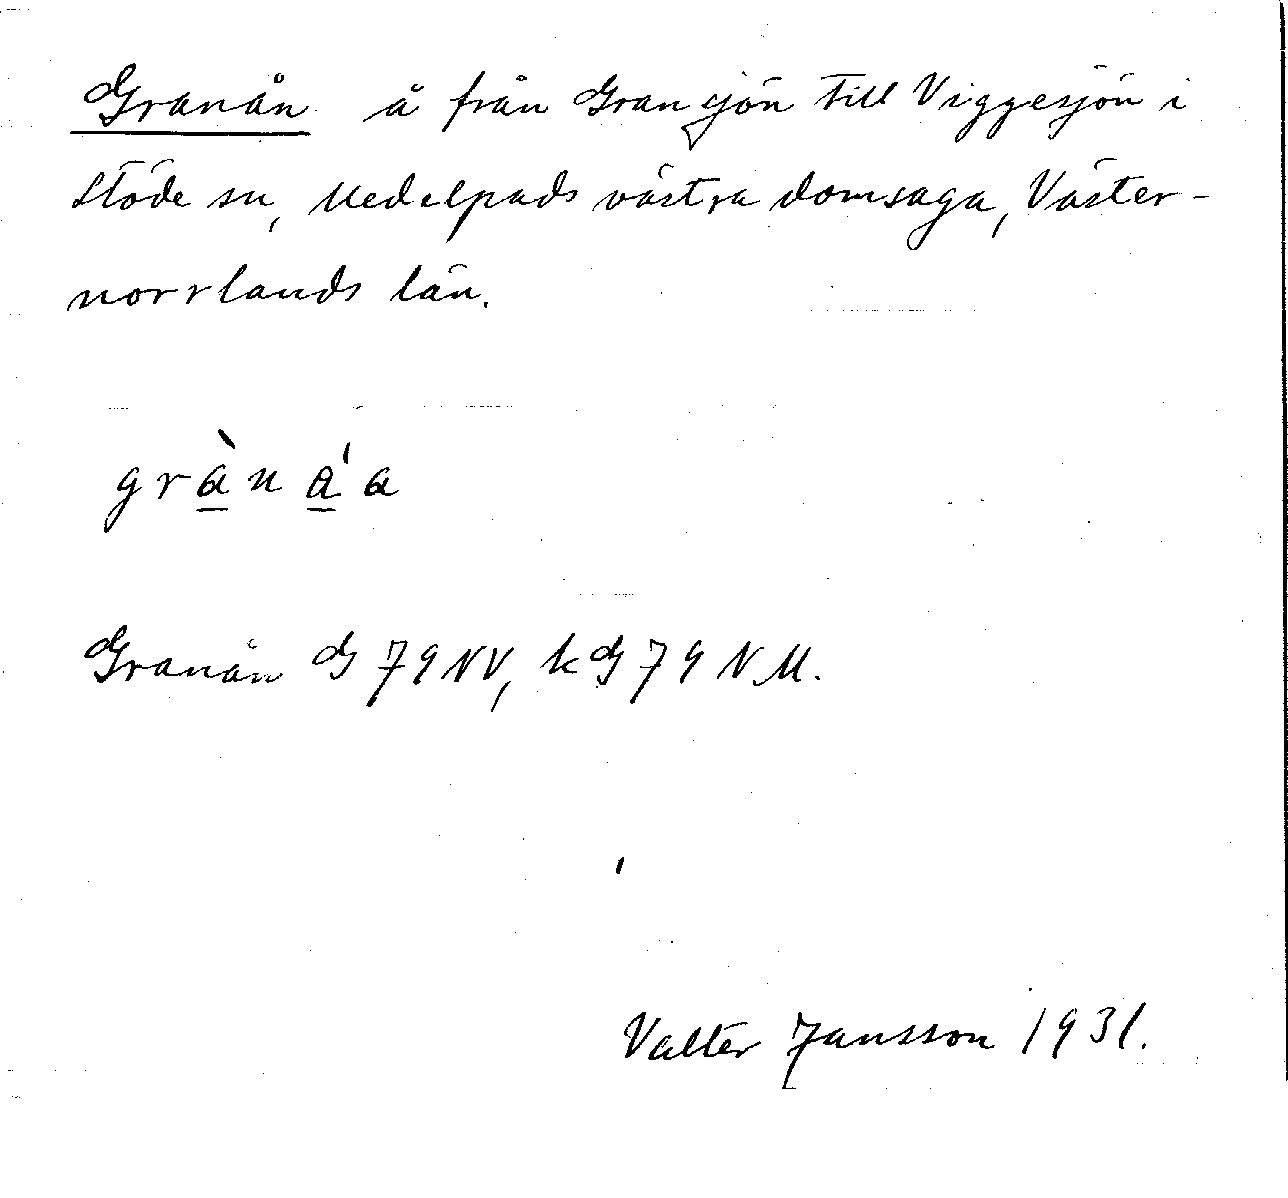 Granån å från Gransjön till Viggesjön i
Stöde sn, Medelpads västra domsaga, Väster-
norrlands län.
grànáa
Granån G 79 NV, k G 79 N M.
Valter Jansson 1931.